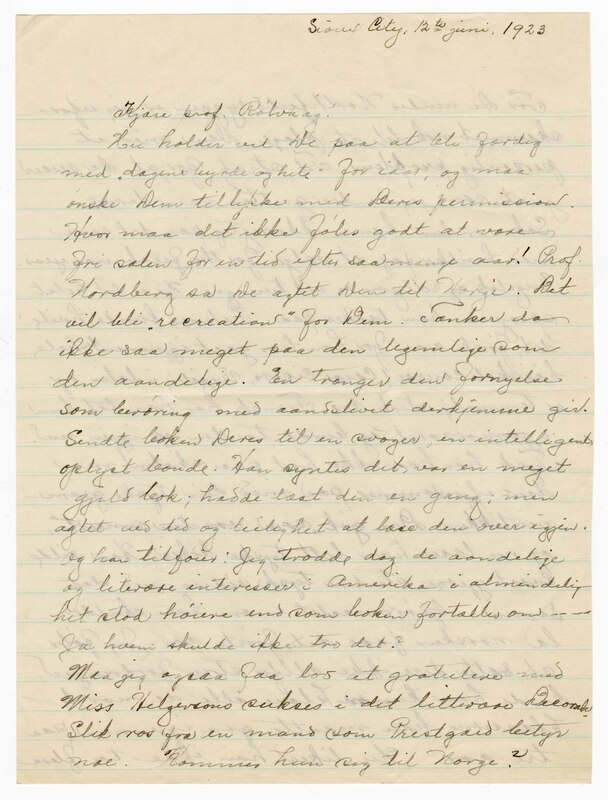 Sioux City, 12te juni, 1923
Kjære prof. Rölvaag.
Nu holder vel De paa at bli færdig
med "dagens byrde og hete" for iaar, og maa
önske Dem tillykke med Deres permission.
Hvor maa det ikke föles godt at være
fri salen for en tid efter saa mange aar! Prof.
Nordberg sa De agtet Dem til Norge. Det
vil bli "recreation" for Dem. Tænker da
ikke saa meget paa den legemlige som
den aandelige. En trænger den fornyelse
som beröring med aandslivet derhjemme gir.
Sendte boken Deres til en svoger, en intelligent
oplyst bonde. Han syntes det var en meget
gjild bok; hadde læst den en gang; men
agtet ved tid og leilighet at læse den over igjen.
Og han tilföier: Jeg trodde dog de aandelige
og literære interesser i Amerika i almindelig-
het stod höiere end som boken fortæller om ----
Ja hvem skulde ikke tro det?
Maa jeg ogsaa faa lov at gratulere med
Miss Helgersons sukses i det littrære Decorah.
Slik ros fra en mand som Prestgard betyr
noe. Kommer hun sig til Norge?